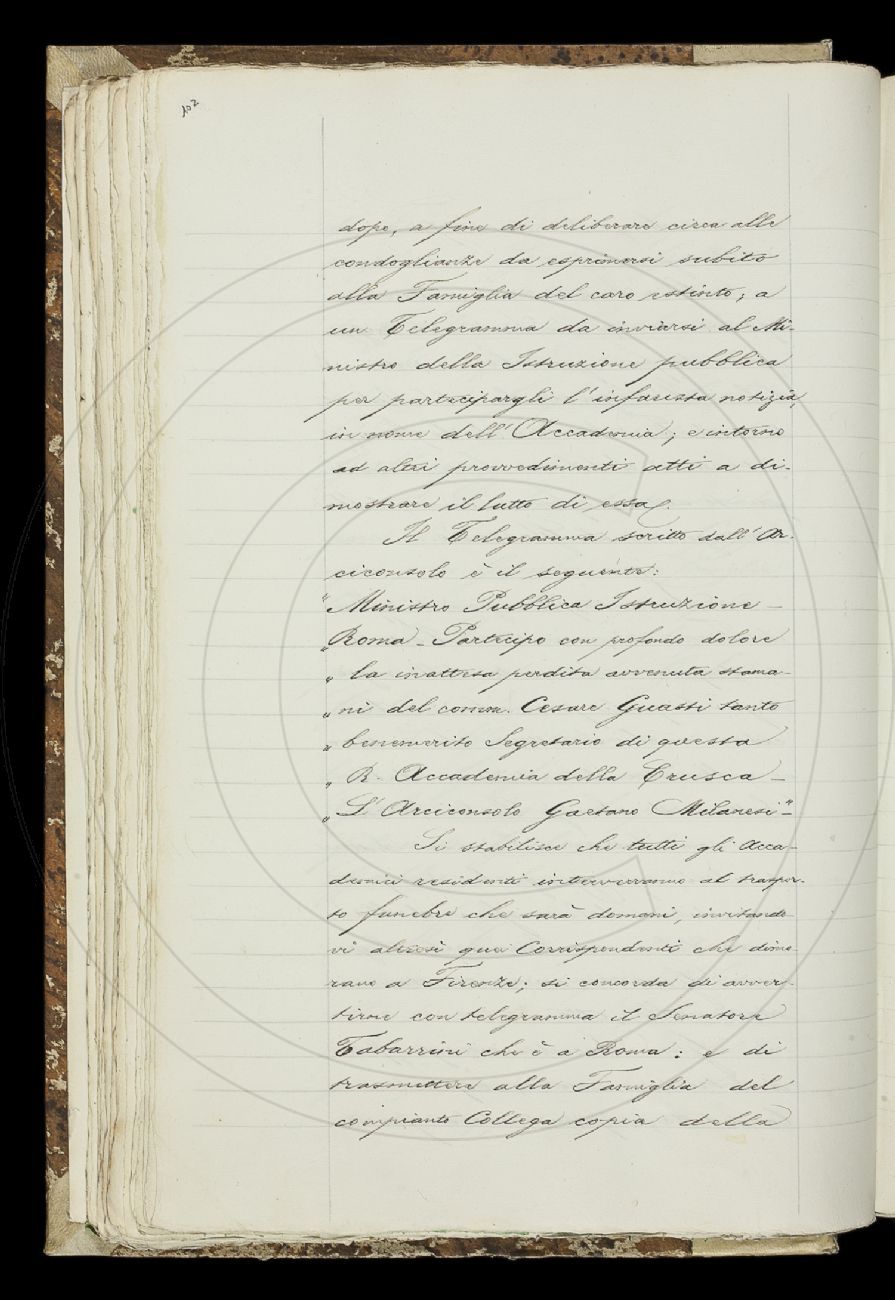 102
dopo, a fine di deliberare circa alle
condoglianze da esprimersi subito
alla Famiglia del caro estinto; a
un Telegramma da inviarsi al Mi-
nistro della Istruzione pubblica
per partecipargli l'infausta notizia,
in nome dell'Accademia; e intorno
ad altri provvedimenti atti a di-
mostrare il lutto di essa.
Il Telegramma scritto dall'Ar-
ciconsolo è il seguente:
"Ministro Pubblica Istruzione -
"Roma - Partecipo con profondo dolore
" la inattesa perdita avvenuta stama-
" ni del comm. Cesare Guasti tanto
" benemerito Segretario di questa
" R. Accademia della Crusca -
" L'Arciconsolo Gaetano Milanesi" -
Si stabilisce che tutti gli Acca-
demici residenti interverranno al traspor-
to funebre che sarà domani, invitando
vi altresì que' Corrispondenti che dimo-
rano a Firenze; si concorda di avver-
tirne con telegramma il Senatore
Tabarrini che è a Roma: e di
trasmettere alla Famiglia del
compianto Collega copia della